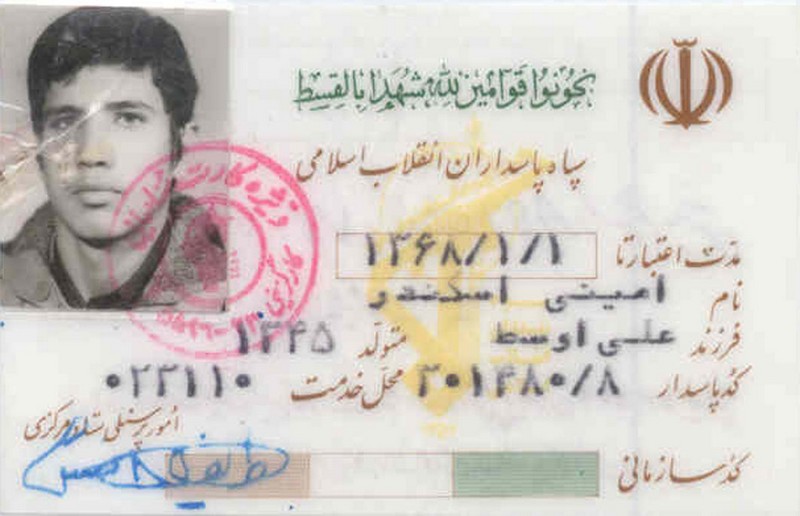 کونوا قوامین لله شهداء بالقسط
سپاه پاسداران انقلاب اسلامی
مدت اعتبار تا ۱۳۶۸/۱/۱
نام امینی اسکندر
فرزند علی اوسط متولد ۱۳۴۵
کد پاسدار ۳۰۱۴۸۰/۸ محل خدمت ۰۲۳۱۱۰
امور پرسنلی ستاد مرکزی
کد سازمانی
ویژه کارت